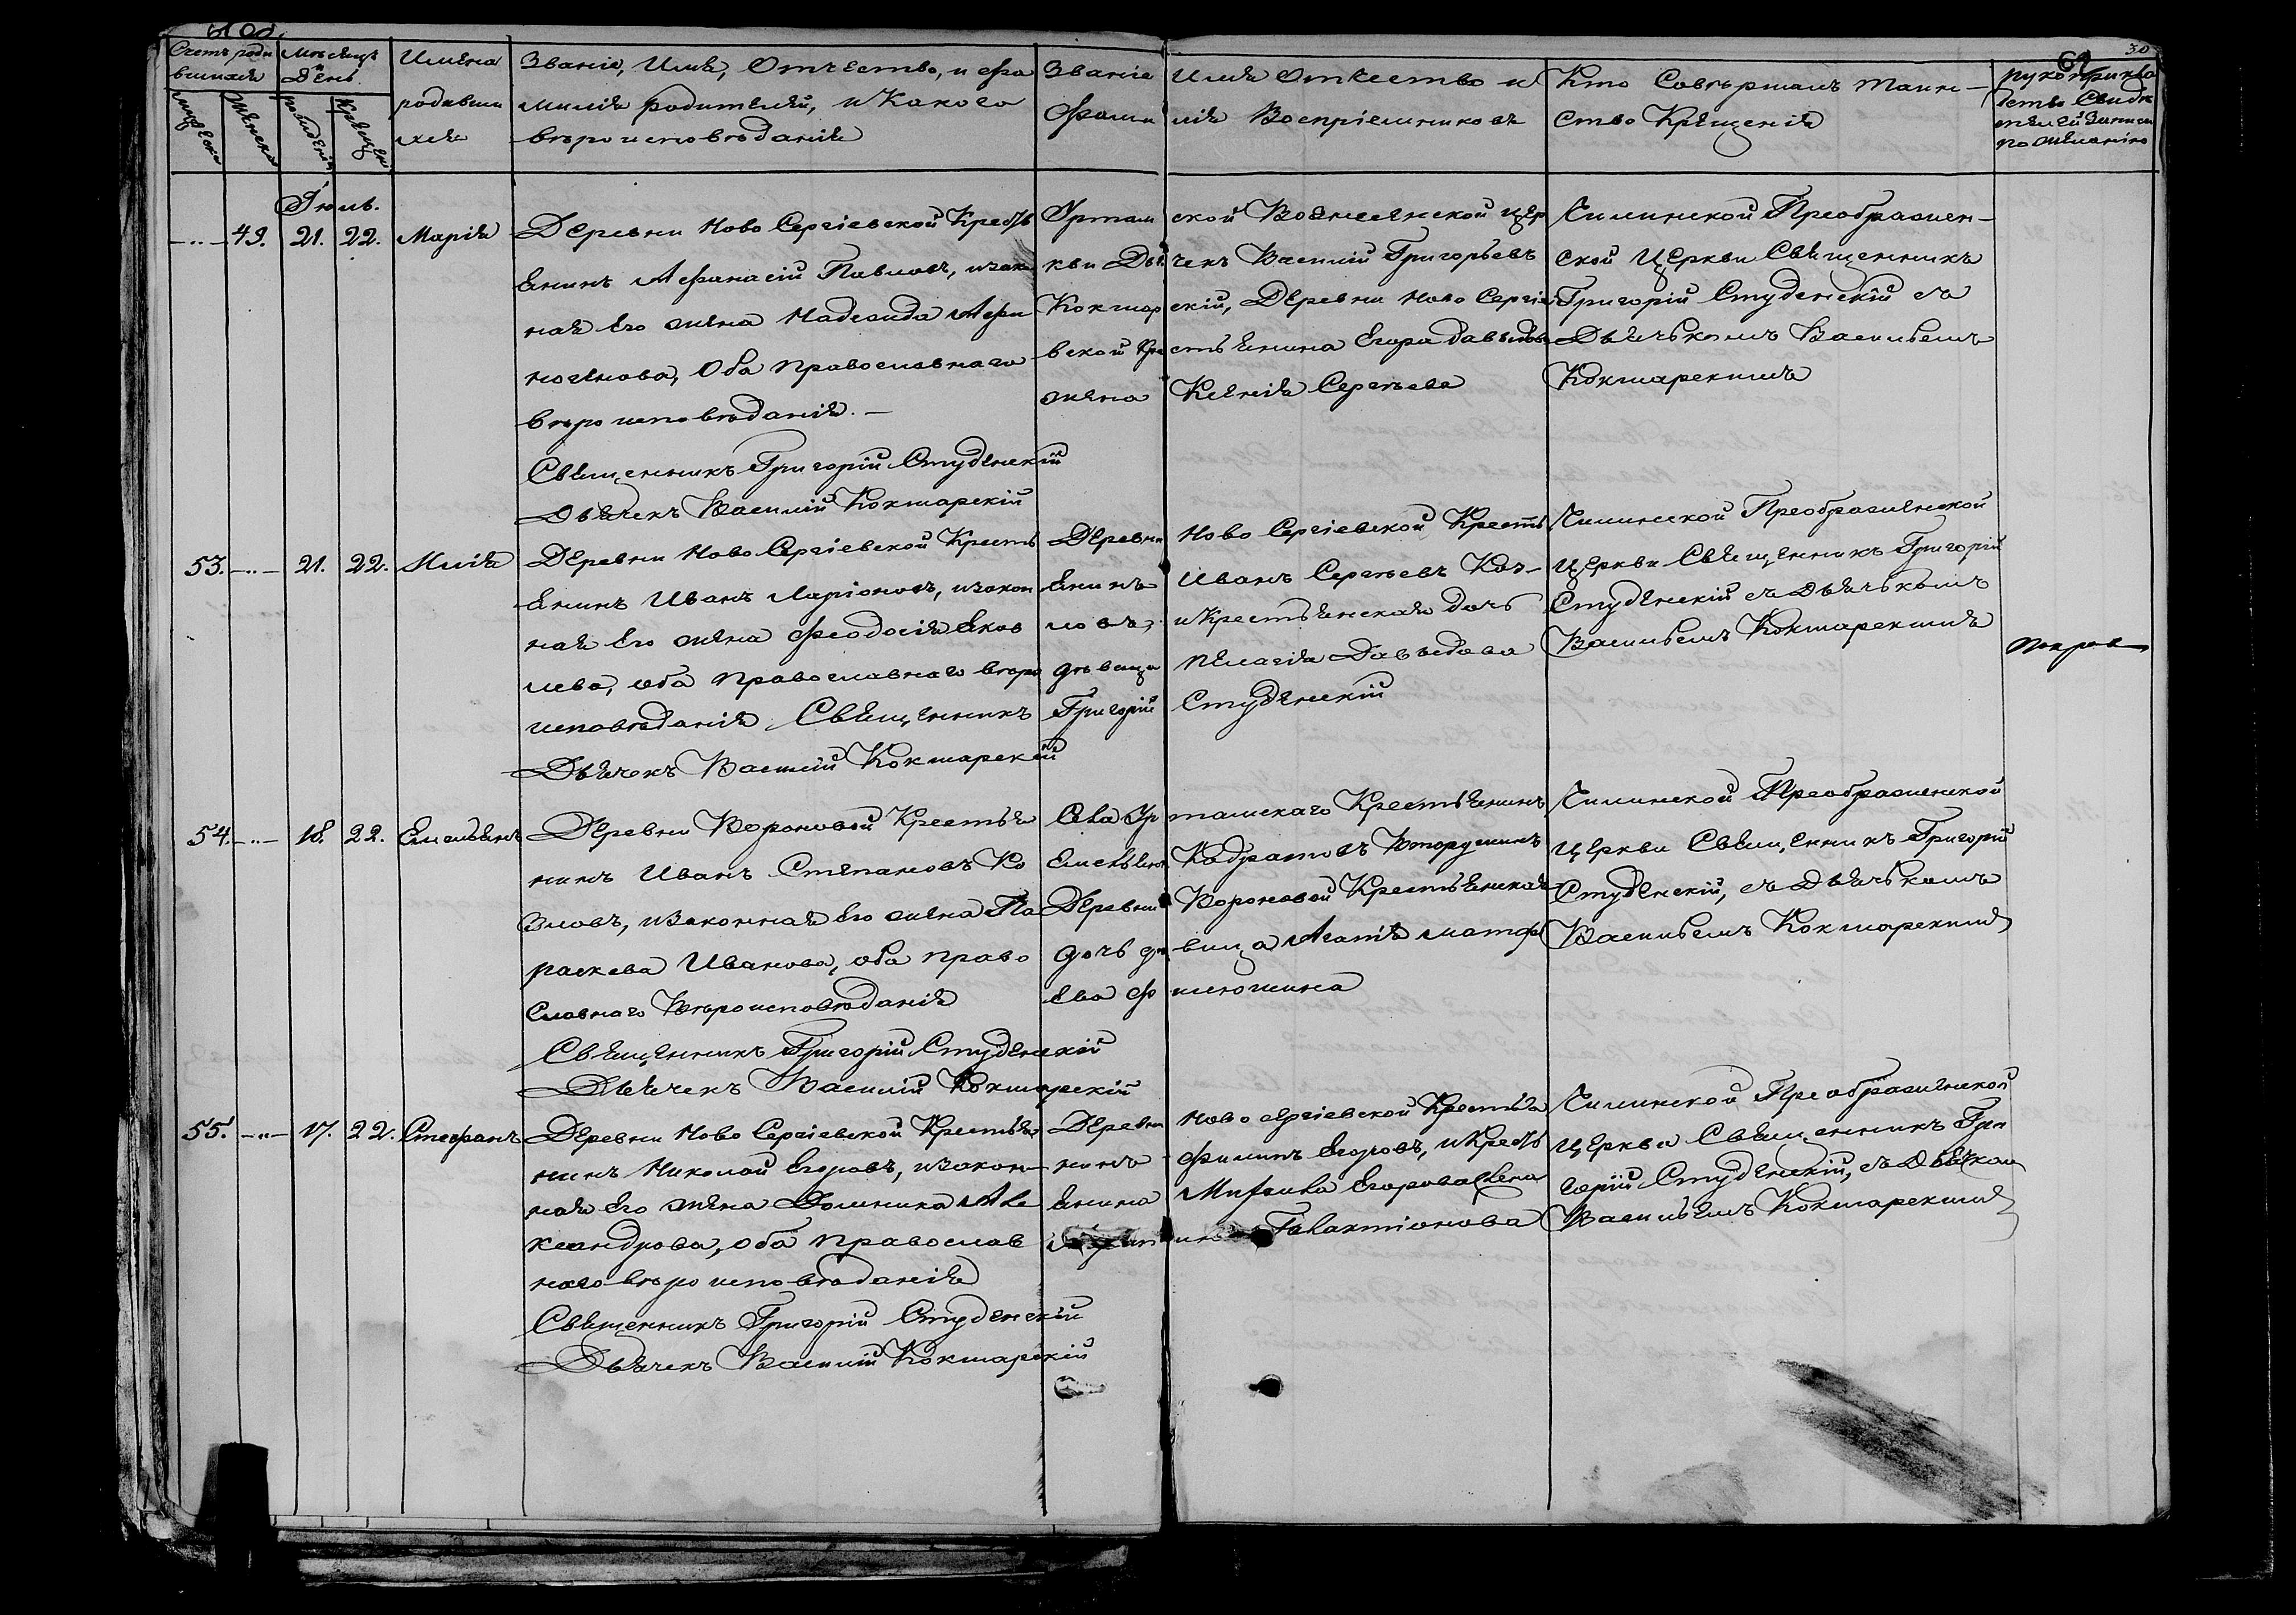 Счетъ роди
вшихся
Мѣсяцъ
и
День.
мужеска
женска
рожденія
крещені
Имена
родивши
хся
Званіе, Имя, Отчество, и фа
милія родителей, и Какого
вѣроисповѣданія
Званіе Имя Отчество и
Фами лія Воспріемниковъ
Кто Совершалъ таин-
ство Крещенія
рукоприкла
дство Свидѣ
телей записи
по желанію
30
Іюль.
-..- 49. 21. 22. Марія
Деревни Ново Сергіевской Кресть
янинъ Афанасій Павловъ, изакон
ная Его жена Надежда Афи
ногенова, Оба православнаго
вѣроисповѣданія.-
Священникъ Григорій Студенскій
Дьячекъ Василій Кокшарскій
Уртам ской Вознесенской цер
кви Дья чекъ Василій Григорьевъ
Кокшар скій, Деревни Ново Сергіе
вской Кре стьянина Егора давыдова
жена Ксенія Сергѣева
Чилинской Преображен-
ской Церкви Священникъ
Григорій Студенскій съ
Дьячькомъ Васильемъ
Кокшарскимъ
53. -..- 21. 22. Илія
Деревни Ново Сергіевской Кресть
янинъ Иванъ Ларіоновъ, изакон
ная Его жена Феодосія Яков
лева, оба православнаго вѣро
исповѣданія Священникъ
Дьячекъ Василій Кокшарскій
Деревни Ново Сергіевской Кресть
янинъ Иванъ Сергѣевъ Коз-
ловъ, и Крестьянская дочь
дѣвица Пелагія Давыдова
Григорій Студенскій
Чилинской Преображенской
церкви Священникъ Григорій
Студенскій съ Дьячькомъ
Васильемъ Кокшарскимъ
54. -..- 18. 22. Емельянъ
Деревни Вороновой Крестья
нинъ Иванъ Степановъ Ко
зловъ, изаконная Его жена Па
раскева Иванова, оба право
славнаго Вѣроисповѣданія
Священникъ Григорій Студенскій
Дьячекъ Василій Кокшарскій
Села Ур тамскаго Крестьянинъ
Емельянъ Кадратовъ Вторушинъ
Деревни Вороновой Крестьянская
дочь дѣ вица Агапія матфѣ
Ева Ф илюшина
Чилинской Преображенской
церкви Священникъ Григорій
Студенскій, съ Дьячькомъ
Васильемъ Кокшарскимъ
55. -..- 17. 22. Стефанъ
Деревни Ново Сергіевской Крестья
нинъ Николай Егоровъ, изакон-
ная Его жена Домника Але
ксандрова, оба православ
наго вѣроисповѣданія
Священникъ Григорій Студенскій
Дьячекъ Василій Кокшарскій
Деревни Ново сергіевской Крестья
нинъ Филипъ Егоровъ, и Кресть
янина Егорова жена
Галактіонова
Чилинской Преображенской
церкви Священникъ Гри
горій Студенскій, съ Дьячком
Васильемъ Кокшарскимъ